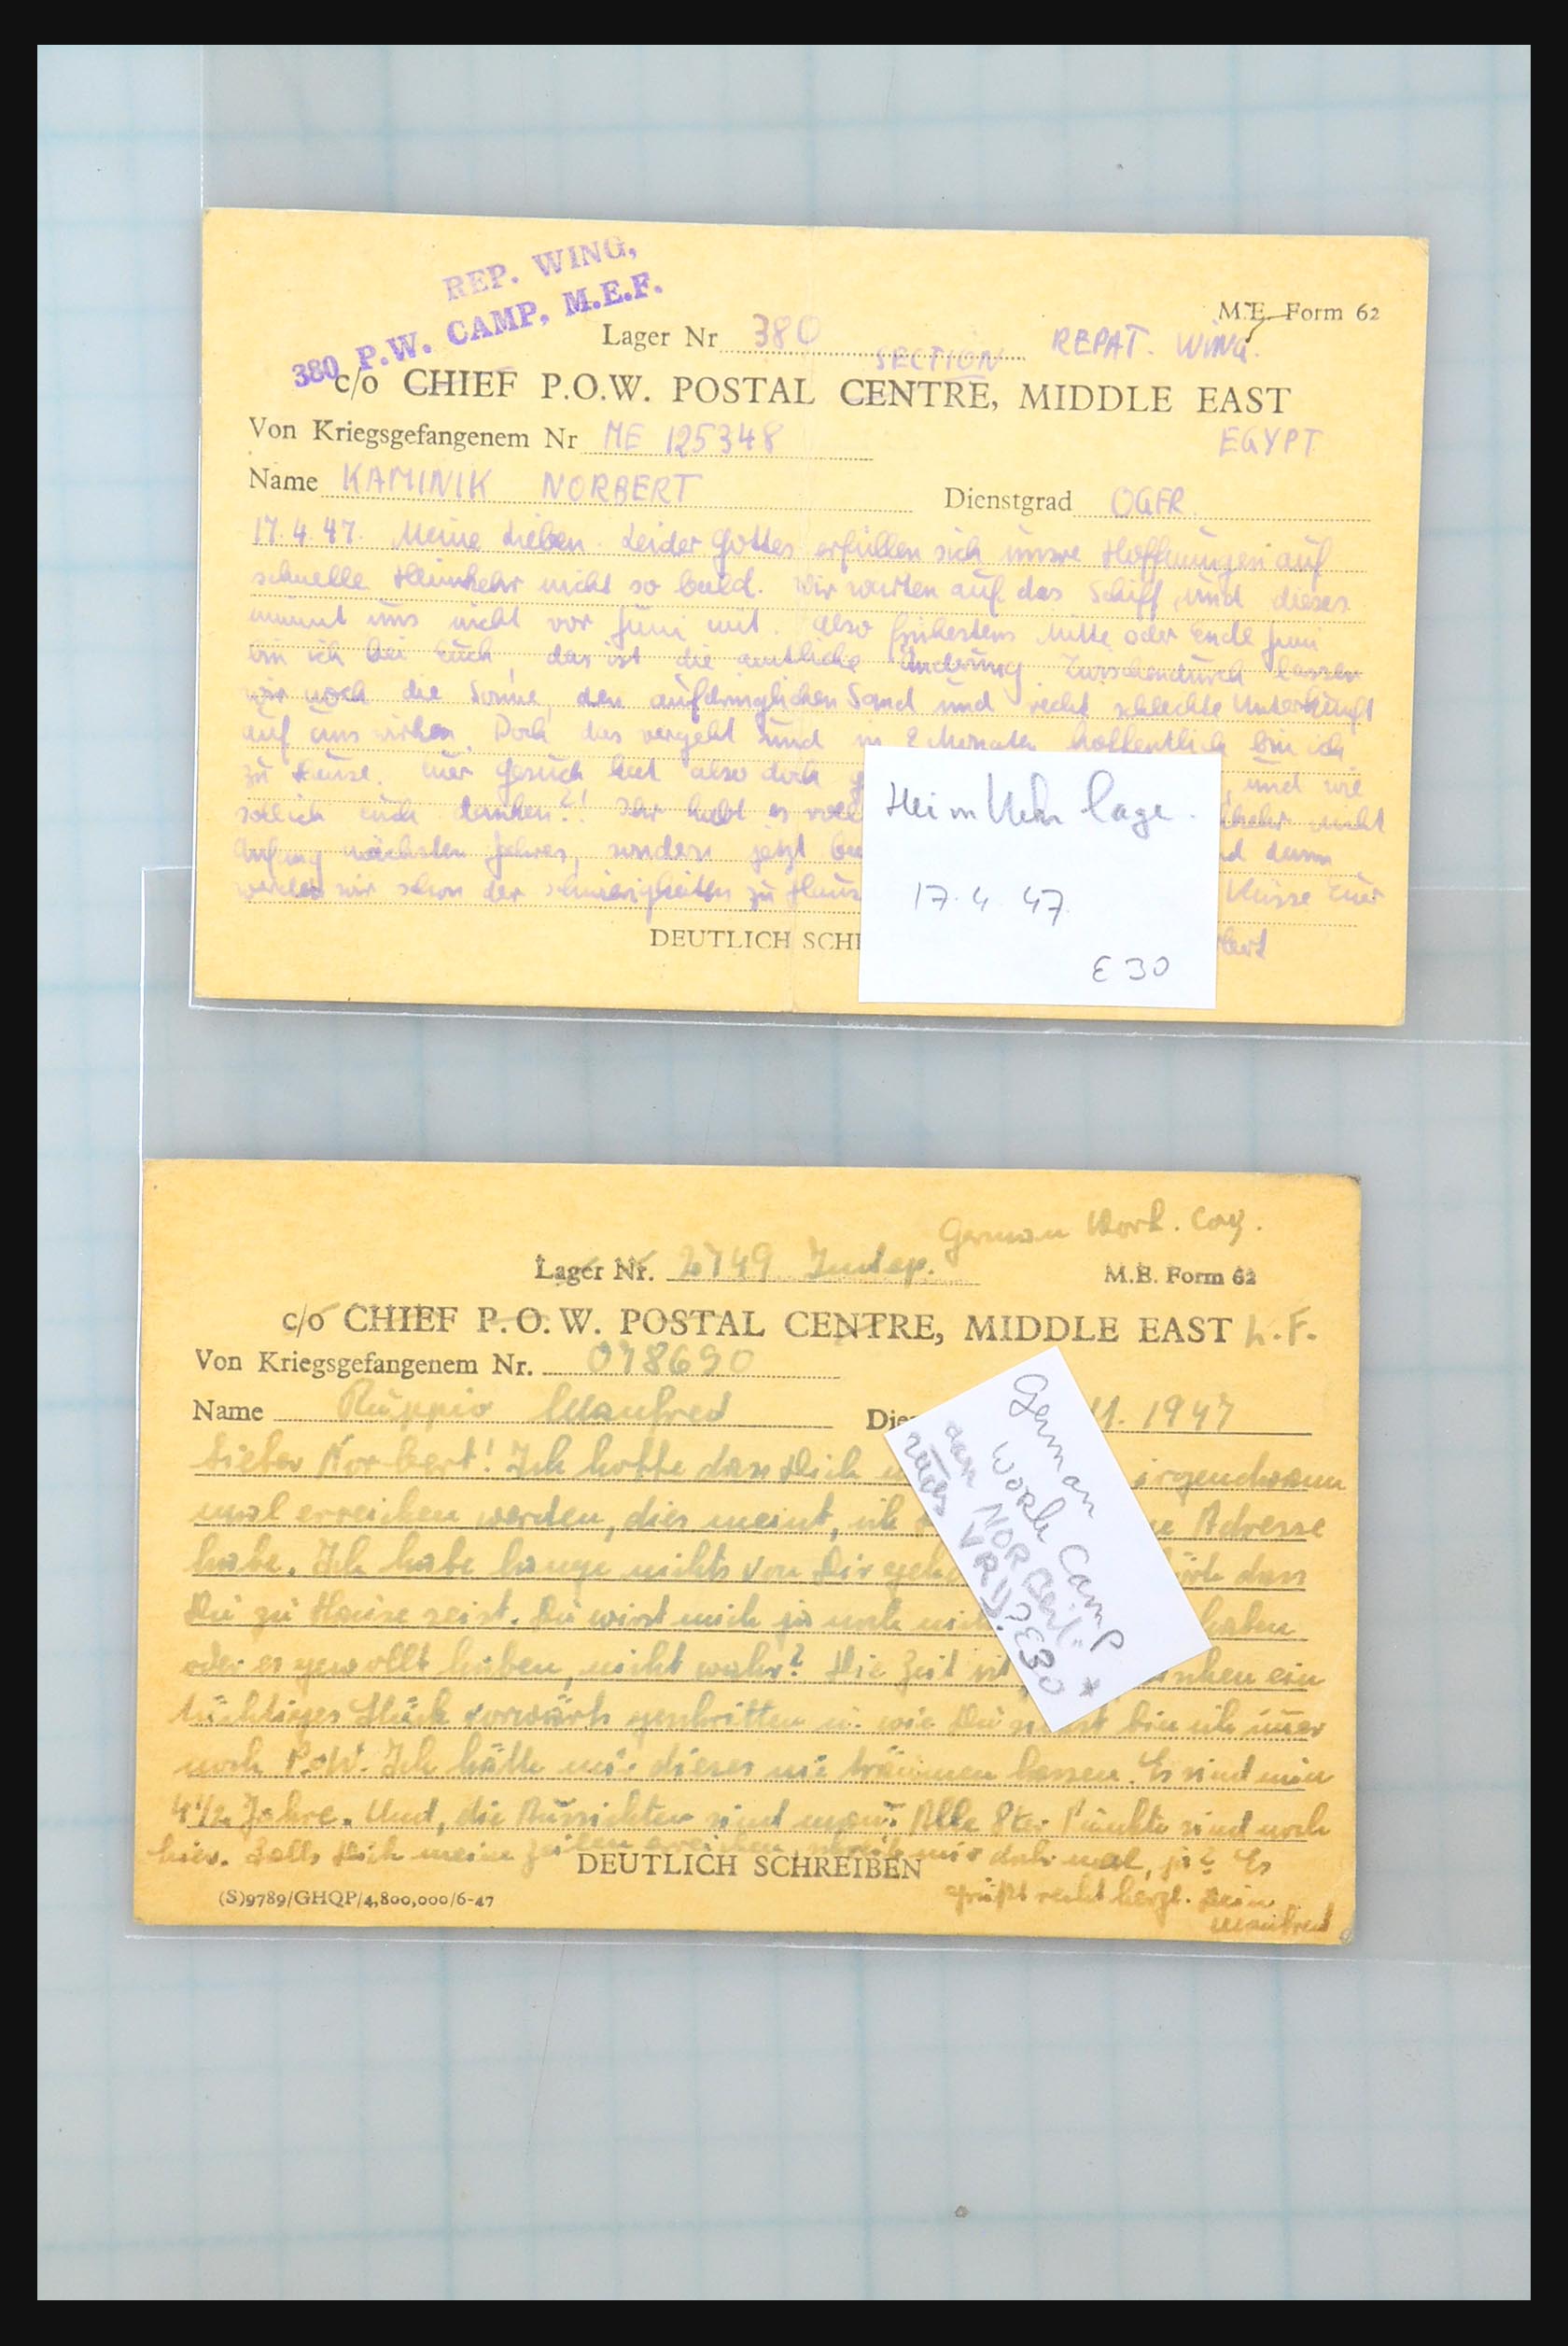 REP. WING,
380 P.W. CAMP, M.E.F.
M.E. Form 62
Lager Nr 380 SECTION REPAT. WING.
c/o CHIEF P.O.W. POSTAL CENTRE, MIDDLE EAST
Von Kriegsgefangenem Nr ME 125348 EGYPT
Name KAMINIK NORBERT Dienstgrad OGFR.
17.4.47. Meine Lieben. Leider Gottes erfüllen sich unsre Hoffnungen auf
schnelle Heimkehr nicht so bald. Wir warten auf das Schiff, und dieses
nimmt uns nicht vor Juni mit. Also frühestens Mitte oder Ende Juni
bin ich bei Euch, das ist die amtliche Änderung. Zwischendurch lassen
wir noch die Sonne, den aufdringlichen Sand und recht schlechte Unterkunft
auf uns wirken. Doch das vergeht und in 2 Monaten hoffentlich bin ich
zu Hause. Euer Gesuch hat also doch und wie
soll ich euch danken?! Ihr habt es nicht
Anfang nächsten Jahres, sondern jetzt dann
werden wir schon der Schwierigkeiten zu Haus Küsse Euer
DEUTLICH SCH
Heimkehr lage.
17.4.47
€30
German Work. Coy.
Lager Nr. 2749 Indep. M.E. Form 62
c/o CHIEF P.O.W. POSTAL CENTRE, MIDDLE EAST L.F.
Von Kriegsgefangenem Nr. 078690
Name Manfred Die 11. 1947
Lieber Norbert! Ich hoffe dass Dich irgendwann
mal erreichen werden, dies meint, ich Adresse
habe. Ich habe lange nichts von Dir dass
Du zu Hause seist. Du wirst mich ja noch haben
oder es gewollt haben, nicht wahr? Die Zeit ist ein
tüchtiges Stück vorwärts geschritten u. wie Du siehst bin ich immer
noch P.o.W. Ich hätte mir dieses nie träumen lassen. Es sind nun
4 1/2 Jahre. Und, die Aussichten sind mau. Alle 8ter Punkte sind noch
hier. Falls Dich meine Zeilen erreichen, schreib mir doch mal, ja? Es
DEUTLICH SCHREIBEN
grüßt recht herzl. Dein
Manfred
(S)9789/GHQP/4,800,000/6-47
German
Work Camp *
an NORBert"
€30